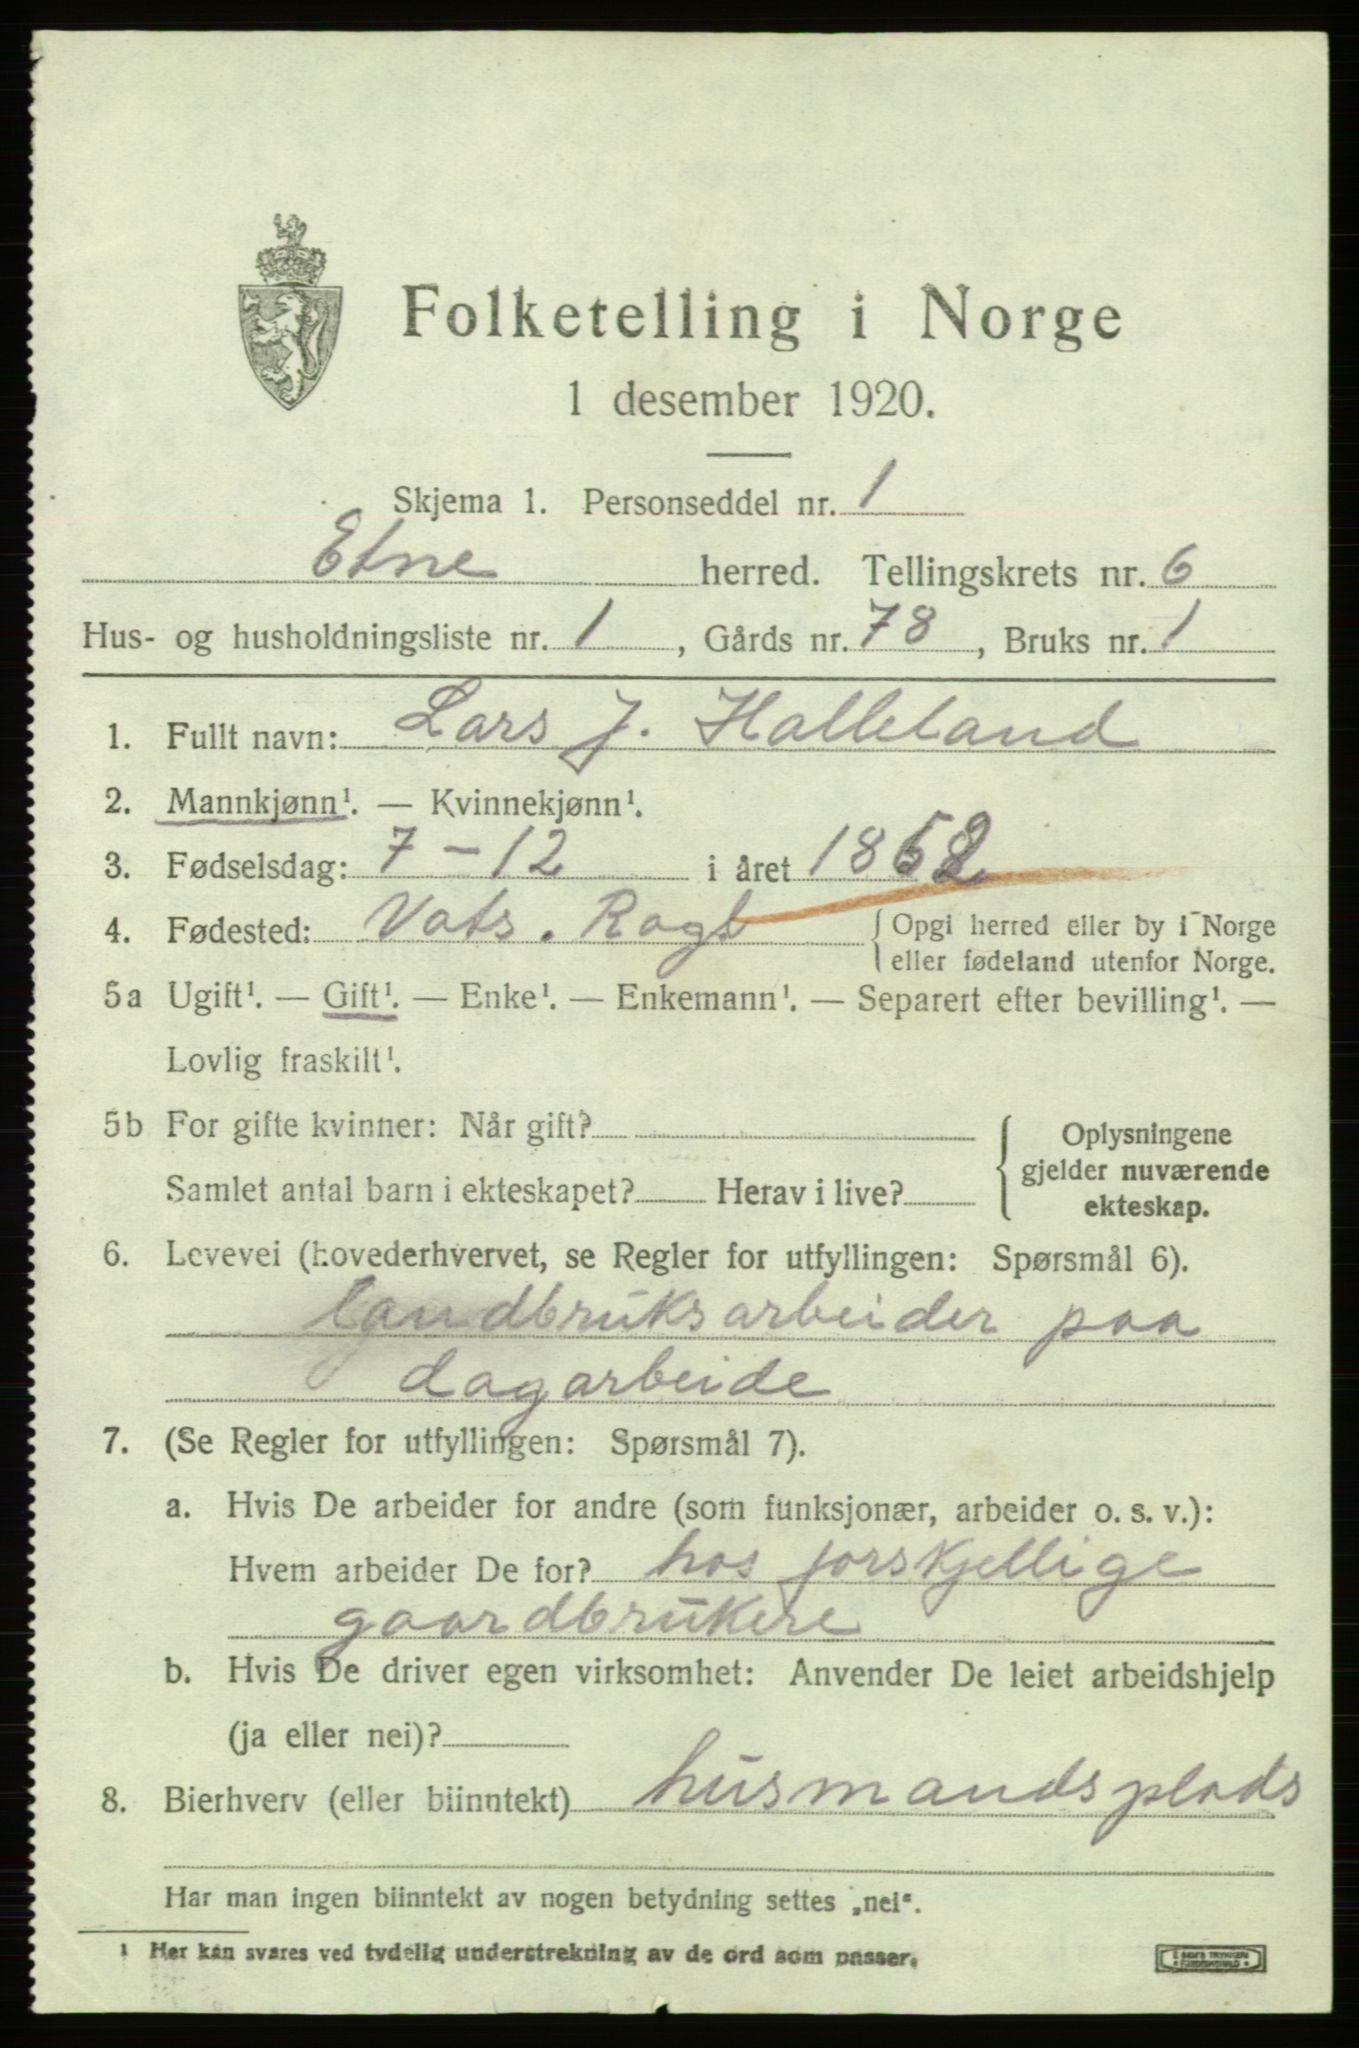 Folketelling i Norge
1 desember 1920.
Skjema 1. Personseddel nr. 1
Etne herred. Tellingskrets nr. 6
Hus- og husholdningsliste nr. 1, Gårds nr. 78, Bruks nr. 1
1. Fullt navn: Lars J. Halleland
2. Mannkjønn¹. — Kvinnekjønn¹.
3. Fødselsdag: 7 - 12 i året 1862
4. Fødested: Vats. Rogl { Opgi herred eller by i Norge
eller fødeland utenfor Norge.
5a Ugift¹. — Gift¹. — Enke¹. — Enkemann¹. — Separert efter bevilling¹. —
Lovlig fraskilt¹.
5b For gifte kvinner: Når gift?
Samlet antal barn i ekteskapet? Herav i live?
{ Oplysningene
gjelder nuværende
ekteskap.
6. Levevei (hovederhvervet, se Regler for utfyllingen: Spørsmål 6).
landbruksarbeider paa
dagarbeide
7. (Se Regler for utfyllingen: Spørsmål 7).
a. Hvis De arbeider for andre (som funksjonær, arbeider o. s. v.):
Hvem arbeider De for? hos forskjellige
gaardbrukere
b. Hvis De driver egen virksomhet: Anvender De leiet arbeidshjelp
(ja eller nei)?
8. Bierhverv (eller biinntekt) husmandsplads
Har man ingen biinntekt av nogen betydning settes „nei“.
¹ Her kan svares ved tydelig understrekning av de ord som passer.